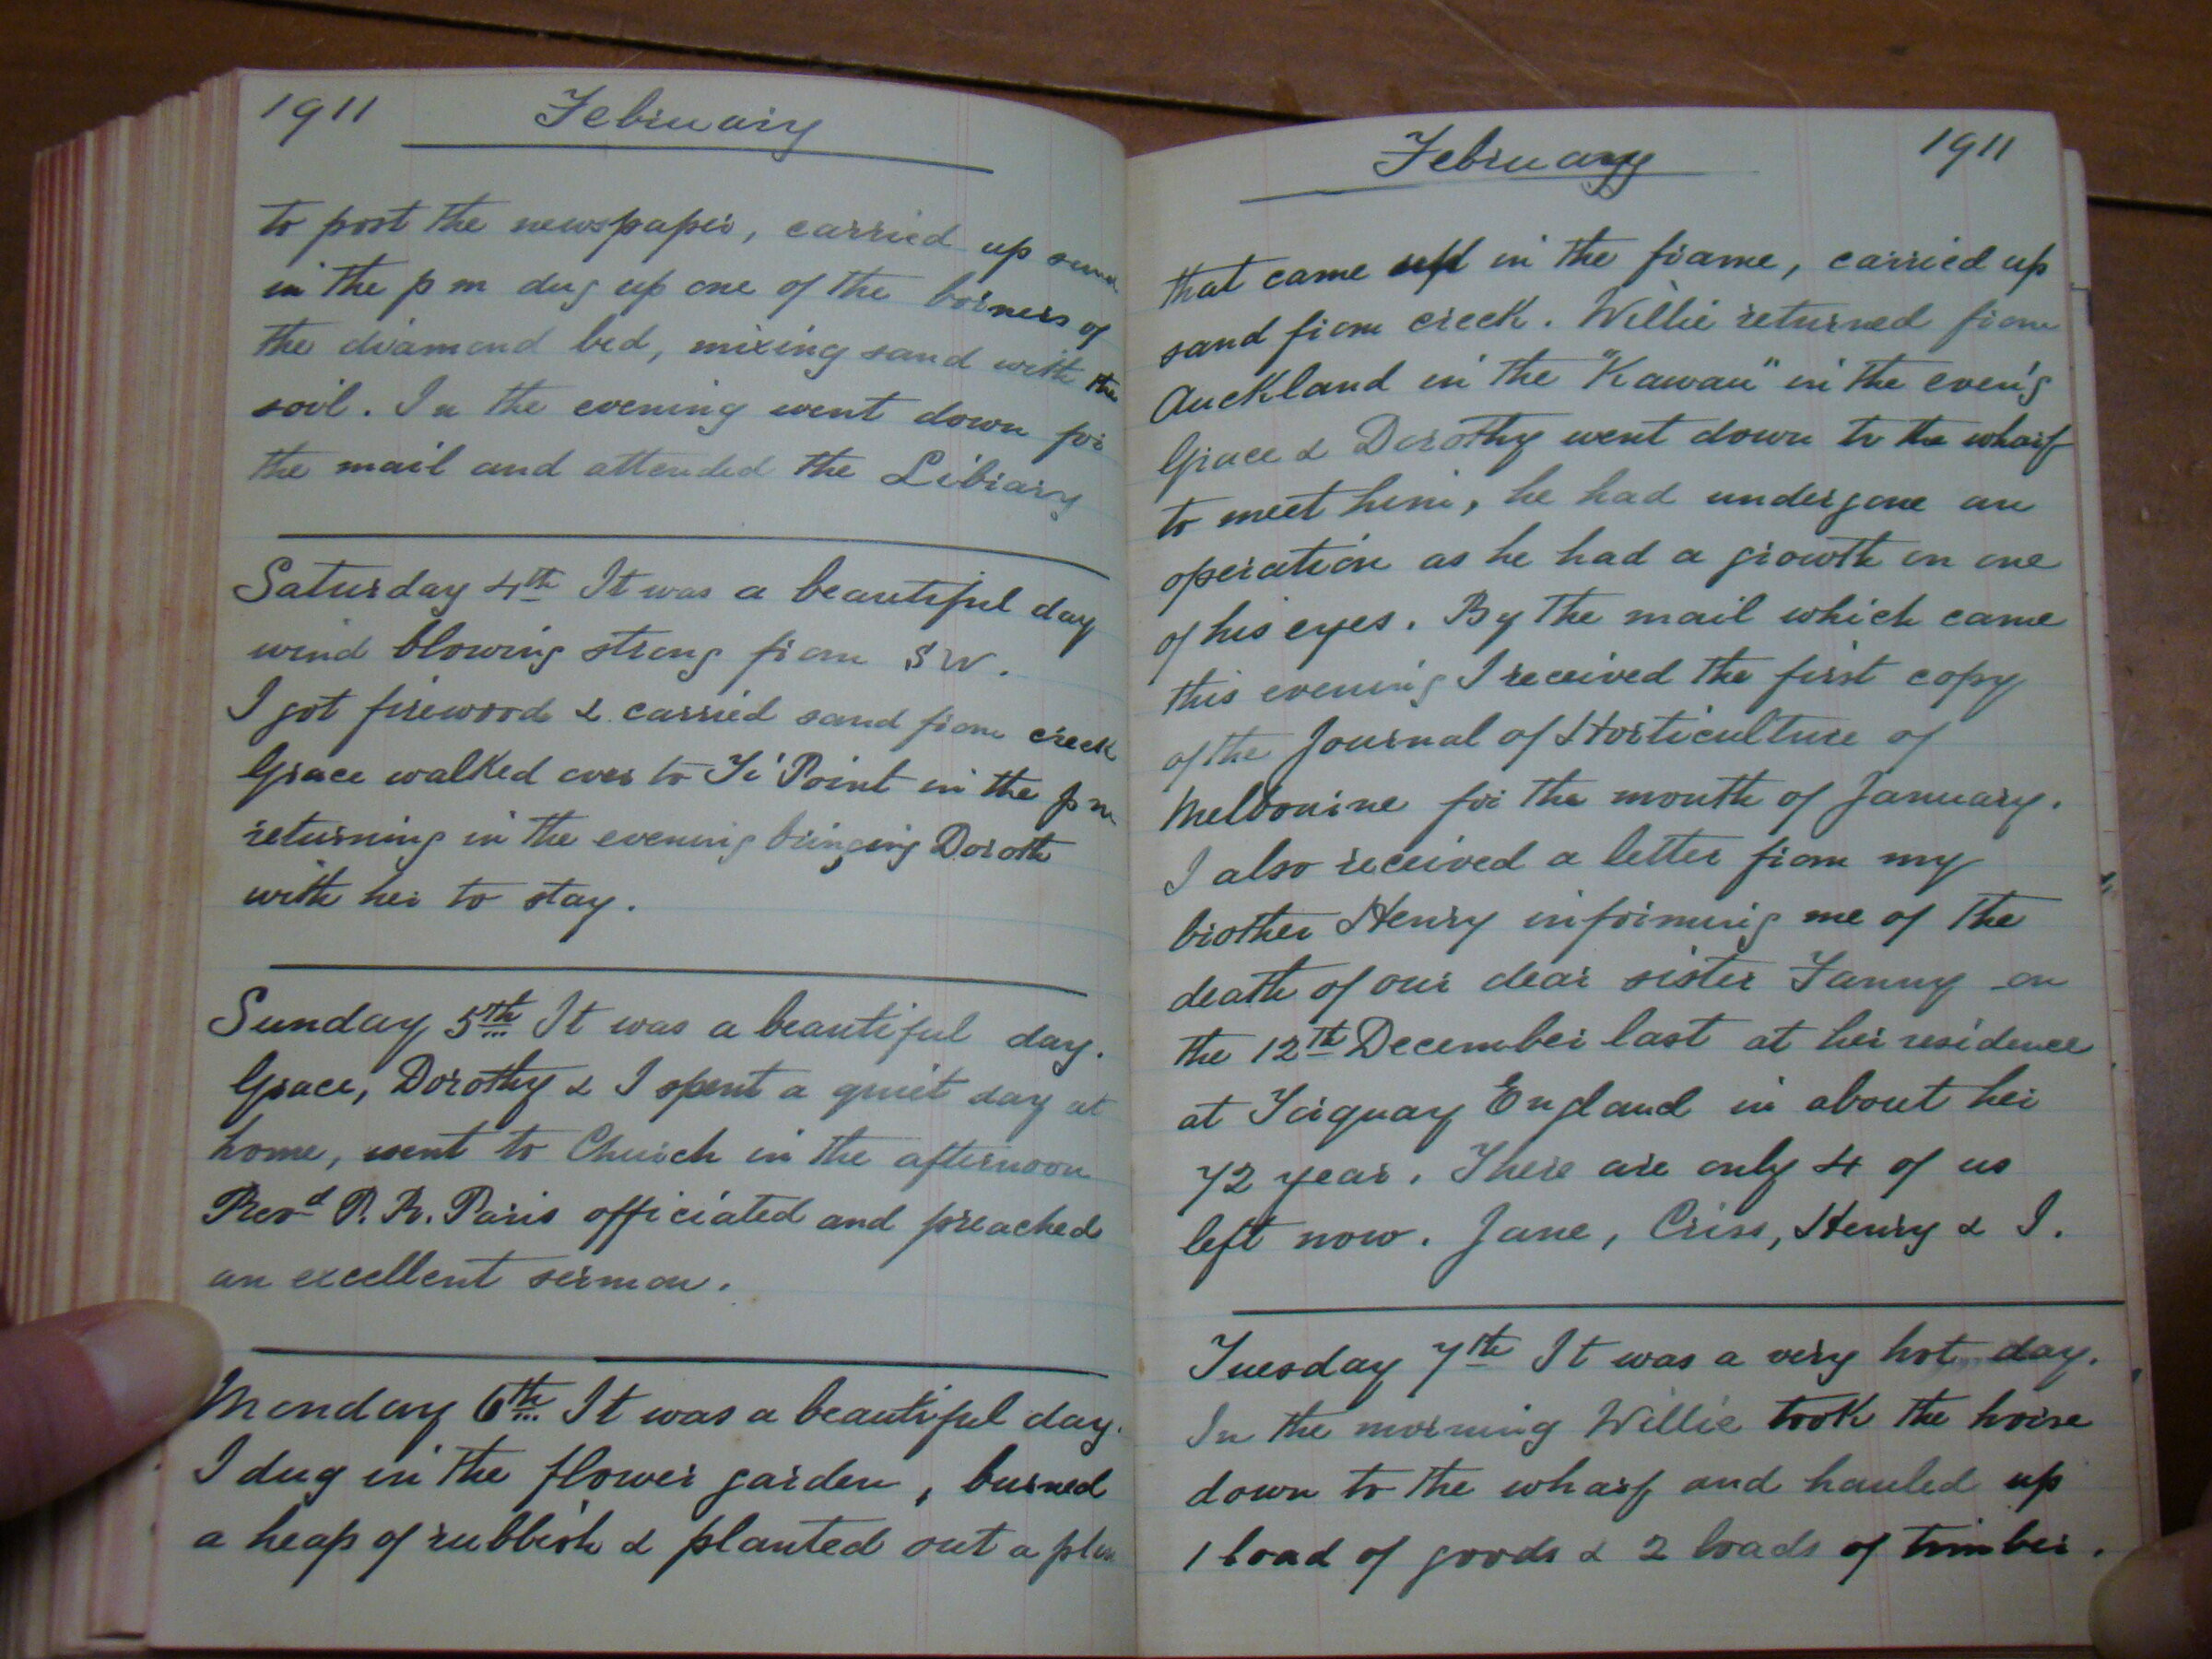 1911 February
to post the newspaper, carried up sand
in the p m dug up one of the corners of
the diamond bed, mixing sand with the
soil. In the evening went down for
the mail and attended the Library
Saturday 4th It was a beautiful day
wind blowing strong from SW.
I got firewood & carried sand from creek
Grace walked over to Ti Point in the p m
returning in the evening bringing Doroth
with her to stay.
Sunday 5th It was a beautiful day.
Grace, Dorothy & I spent a quiet day at
home, went to Church in the afternoon
Revd P. R. Paris officiated and preached
an excellent sermon.
Monday 6th It was a beautiful day.
I dug in the flower garden, burned
a heap of rubbish & planted out a
February 1911
that came up in the frame, carried up
sand from creek. Willie returned from
Auckland in the "Kawau" in the even'g
Grace & Dorothy went down to the wharf
to meet him, he had undergone an
operation as he had a growth on one
of his eyes. By the mail which came
this evening I received the first copy
of the Journal of Horticulture of
Melbourne for the month of January.
I also received a letter from my
brother Henry informing me of the
death of our dear sister Fanny on
the 12th December last at her residence
at Torquay England in about her
72 year. There are only 4 of us
left now. Jane, Criss, Henry & I.
Tuesday 7th It was a very hot day.
In the morning Willie took the horse
down to the wharf and hauled up
1 load of goods & 2 loads of timber.